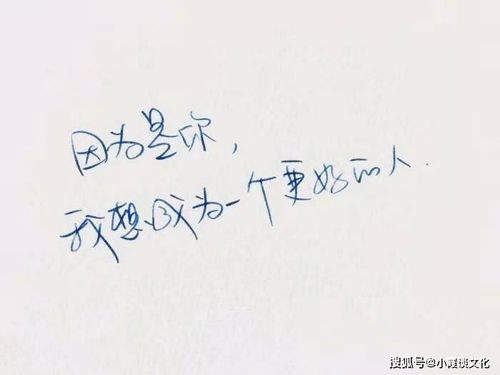 因为是你，
我想成为一个更好的人.
搜狐号@小霞谈文化